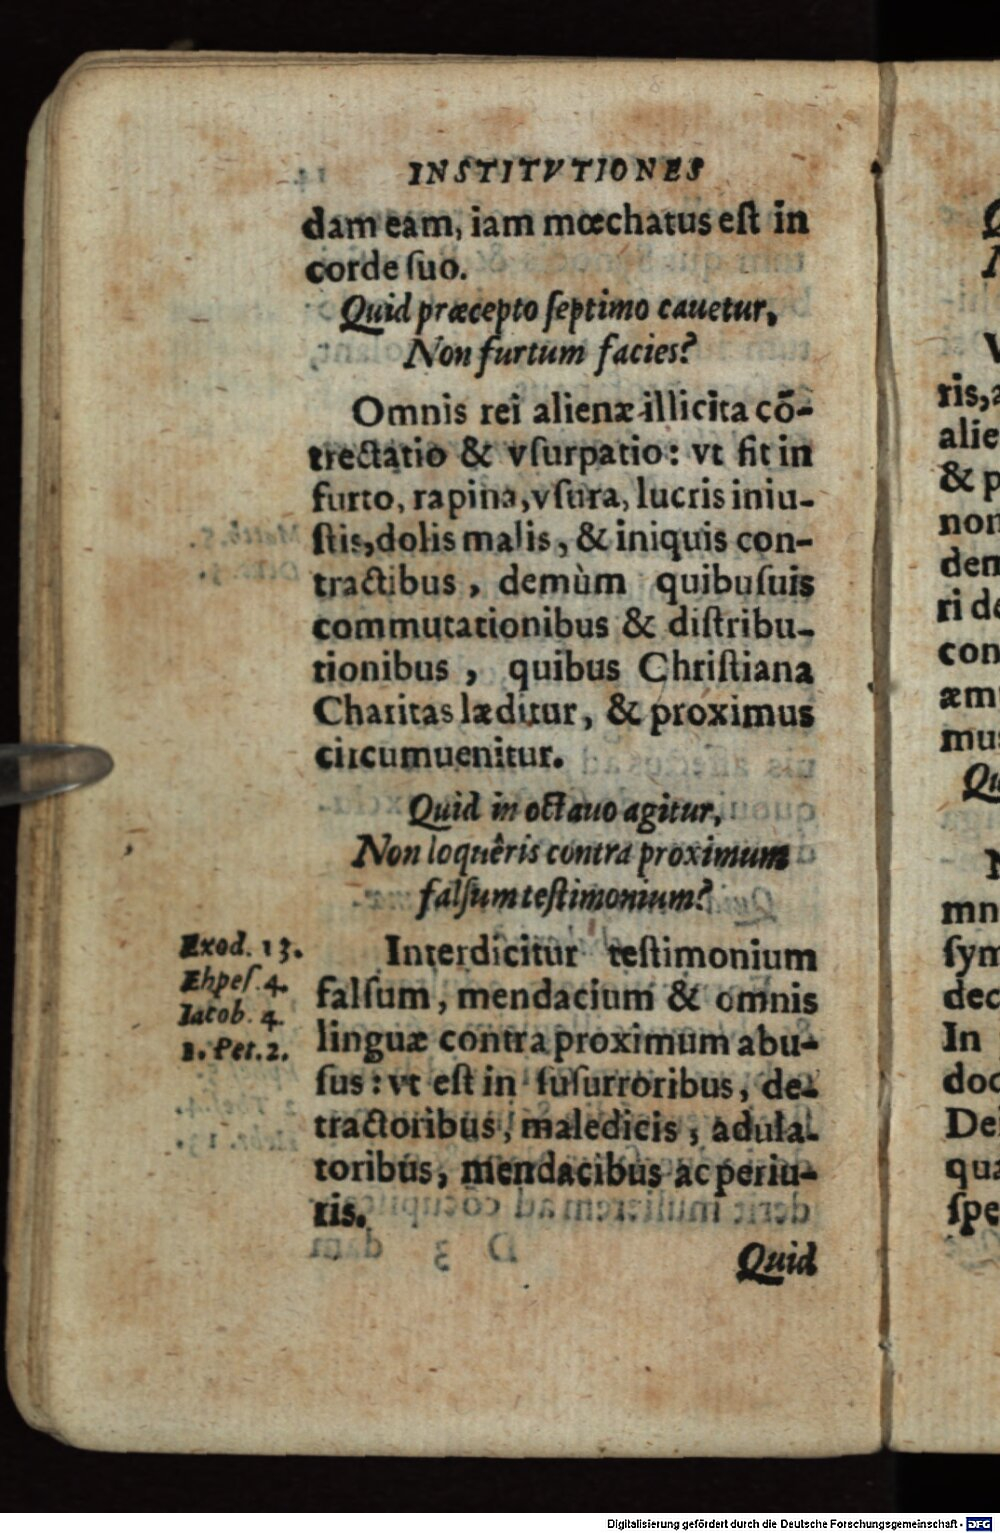 INSTITVTIONES
dam eam, iam mœchatus eſt in
corde ſuo.
Quid præcepto ſeptimo cauetur,
Non furtum facies?
Omnis rei alienæ illicita cō-
trectatio & vſurpatio: vt fit in
furto, rapina, vſura, lucris iniu-
ſtis, dolis malis, & iniquis con-
tractibus, demùm quibuſuis
commutationibus & diſtribu-
tionibus, quibus Chriſtiana
Charitas læditur, & proximus
circumuenitur.
Quid in octauo agitur,
Non loquêris contra proximum
falſum teſtimonium?
Exod. 13.
Ehpeſ. 4.
Iacob. 4.
1. Pet. 2.
Interdicitur teſtimonium
falſum, mendacium & omnis
linguæ contra proximum abu-
ſus: vt eſt in ſuſurroribus, de-
tractoribus, maledicis, adula-
toribus, mendacibus ac periu-
ris.
Quid
ris,
alie
& p
non
dem
ri de
con
æm
mus
Qu
mn
ſym
dec
In
doc
De
qua
ſpe
Digitalisierung gefördert durch die Deutsche Forschungsgemeinschaft - DFG